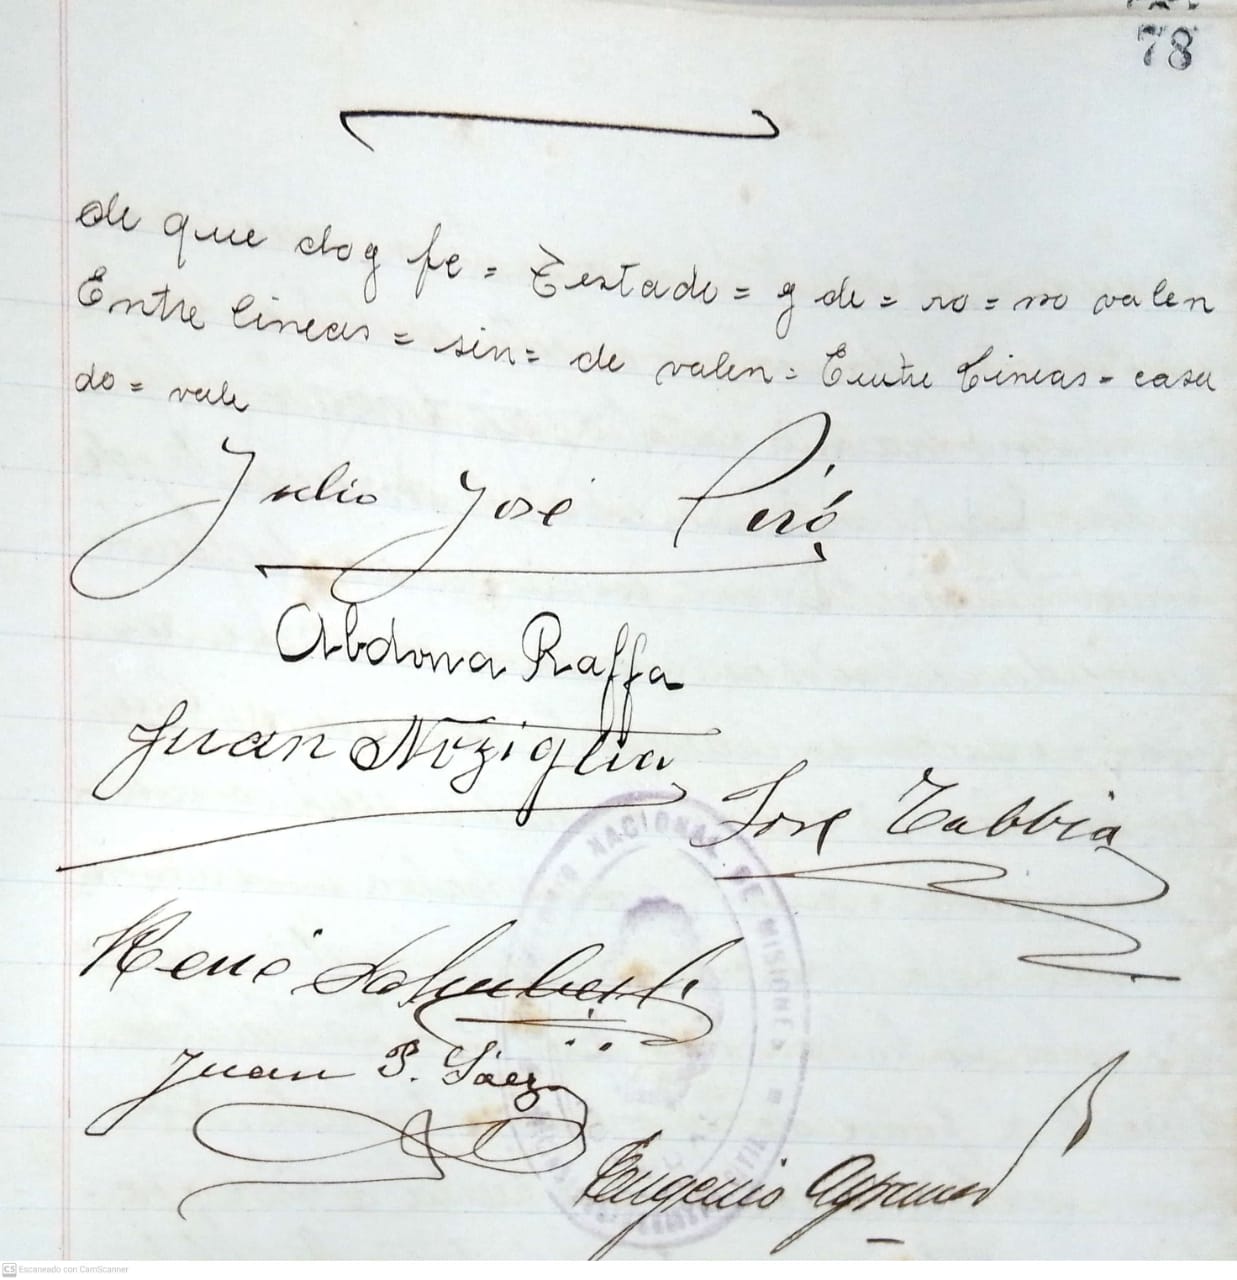 78
de que doy fe = Testado = y de = ro = no valen
Entre lineas = sin = de valen = Entre lineas = casa
do = vale
Julio José Peró
Abdona Raffa
Juan Noziglia
José Tabbia
René
Juan P. Sáez
Eugenio
NACIONAL DE MISIONES
CS Escaneado con CamScanner